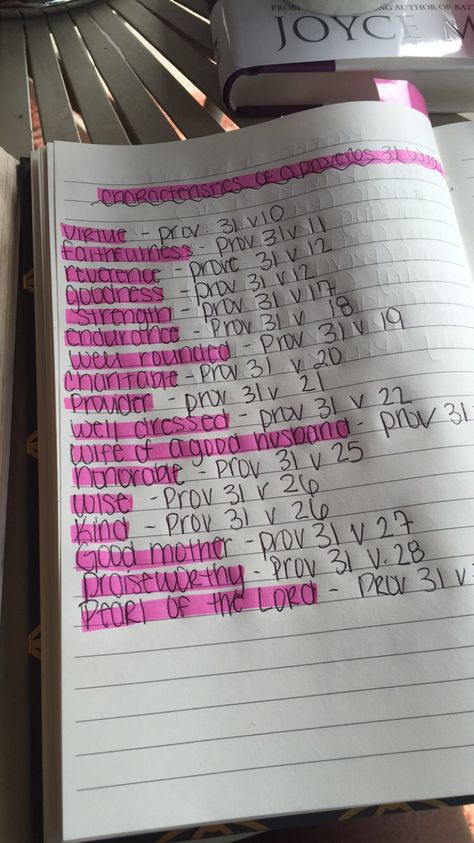 FROM THE #1 NEW YORK TIMES BESTSELLING AUTHOR OF BAT
JOYCE M
characteristics of a proverbs 31
virtue - prov 31 v 10
faithfulness - prov 31 v 11
reverence - prove 31 v 12
goodness - prov 31 v 12
strength - prov 31 v 17
endurance - prov 31 v 18
well rounded - prov 31 v 19
charitable - prov 31 v 20
provider - prov 31 v 21
well dressed - prov 31 v 22
wife of a good husband - prov 31
honorable - prov 31 v 25
wise - prov 31 v 26
kind - prov 31 v 26
Good mother - prov 31 v 27
praiseworthy - prov 31 v. 28
PEARl OF the LORD - PROV 31 v